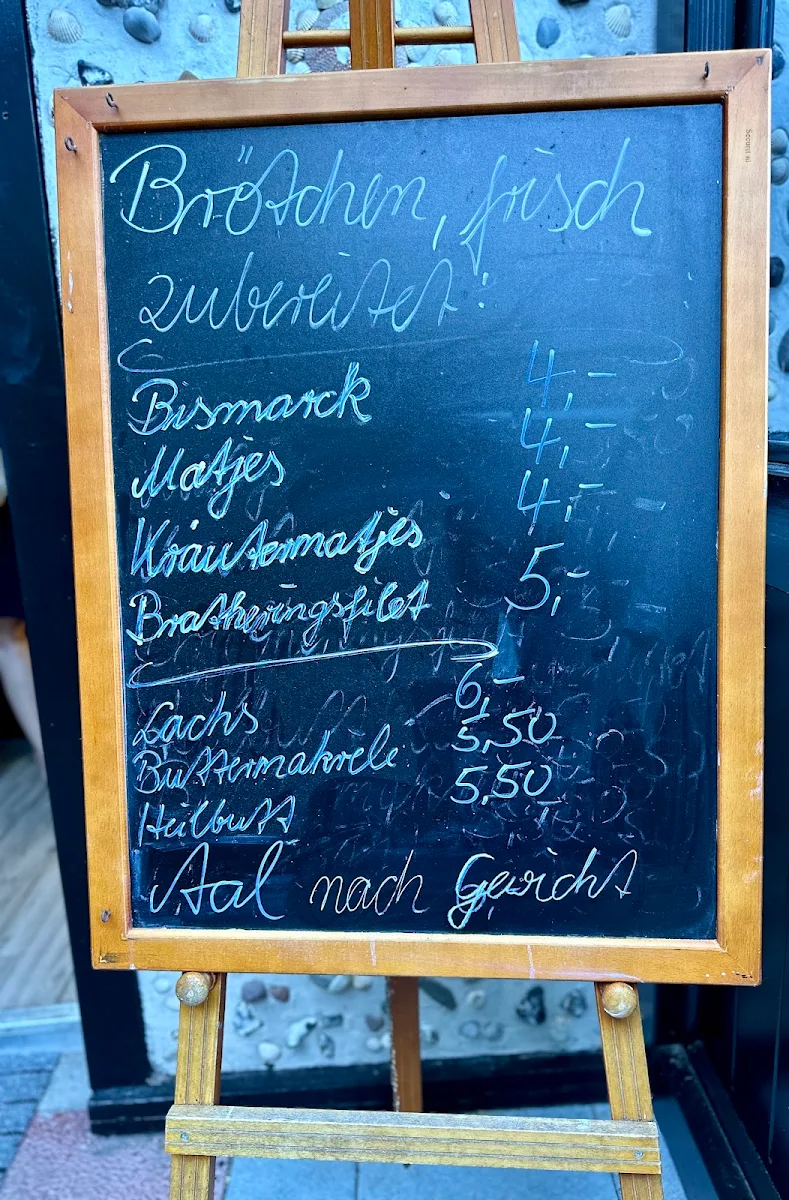 Brötchen, frisch
zubereitet:
Bismarck 4,-
Matjes 4,-
Kräutermatjes 4,-
Bratheringsfilet 5,-
Lachs 6,-
Buttermakrele 5,50
Heilbutt 5,50
Aal nach Gewicht